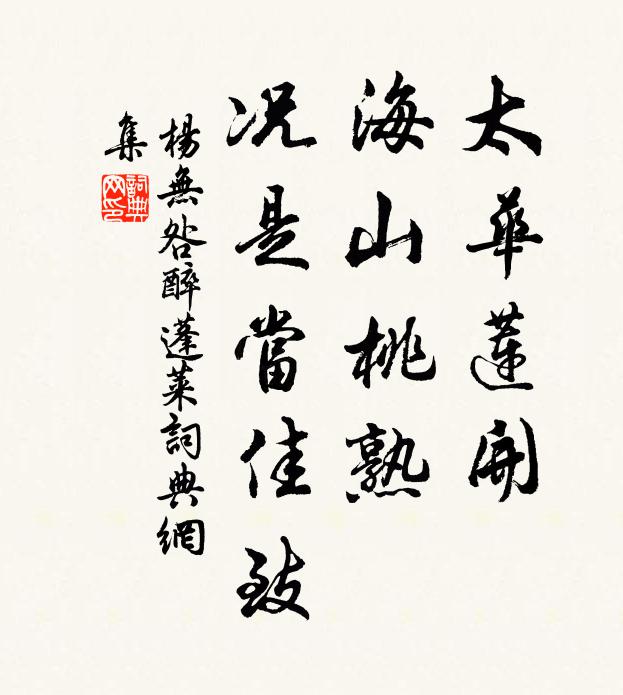 太華蓮開
海山桃熟
況是當佳致
楊無咎醉蓬萊詞典網
集
詞典網印